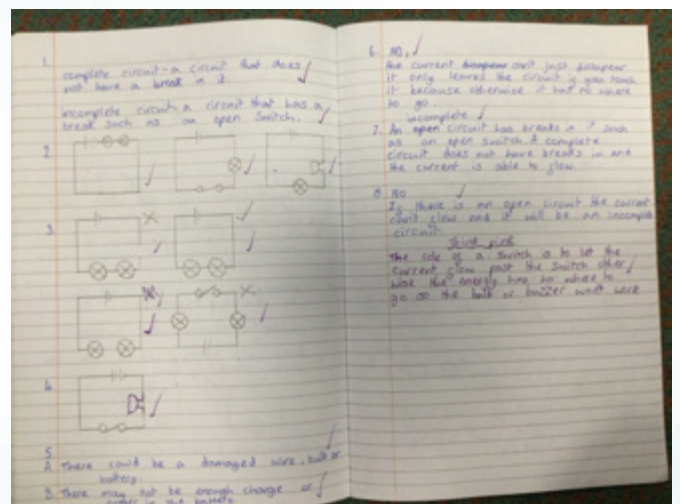 1.
complete circuit - a circuit that does
not have a break in it.
incomplete circuit - a circuit that has a
break such as an open switch.
2.
3.
4.
5.
A There could be a damaged wire, bulb or
battery.
B. There may not be enough charge or
in the battery
6. NO,
the current can't just dissapear
it only leaves the circuit if you touch
it because otherwise it has no where
to go.
incomplete
7. An open circuit has breaks in it such
as an open switch. A complete
circuit does not have breaks in and
the current is able to flow.
8. NO
If there is an open circuit the current
can't flow and it will be an incomplete
circuit.
think pink
The role of a switch is to let the
current flow past the switch other
wise the energy has no where to
go so the bulb or buzzer won't work